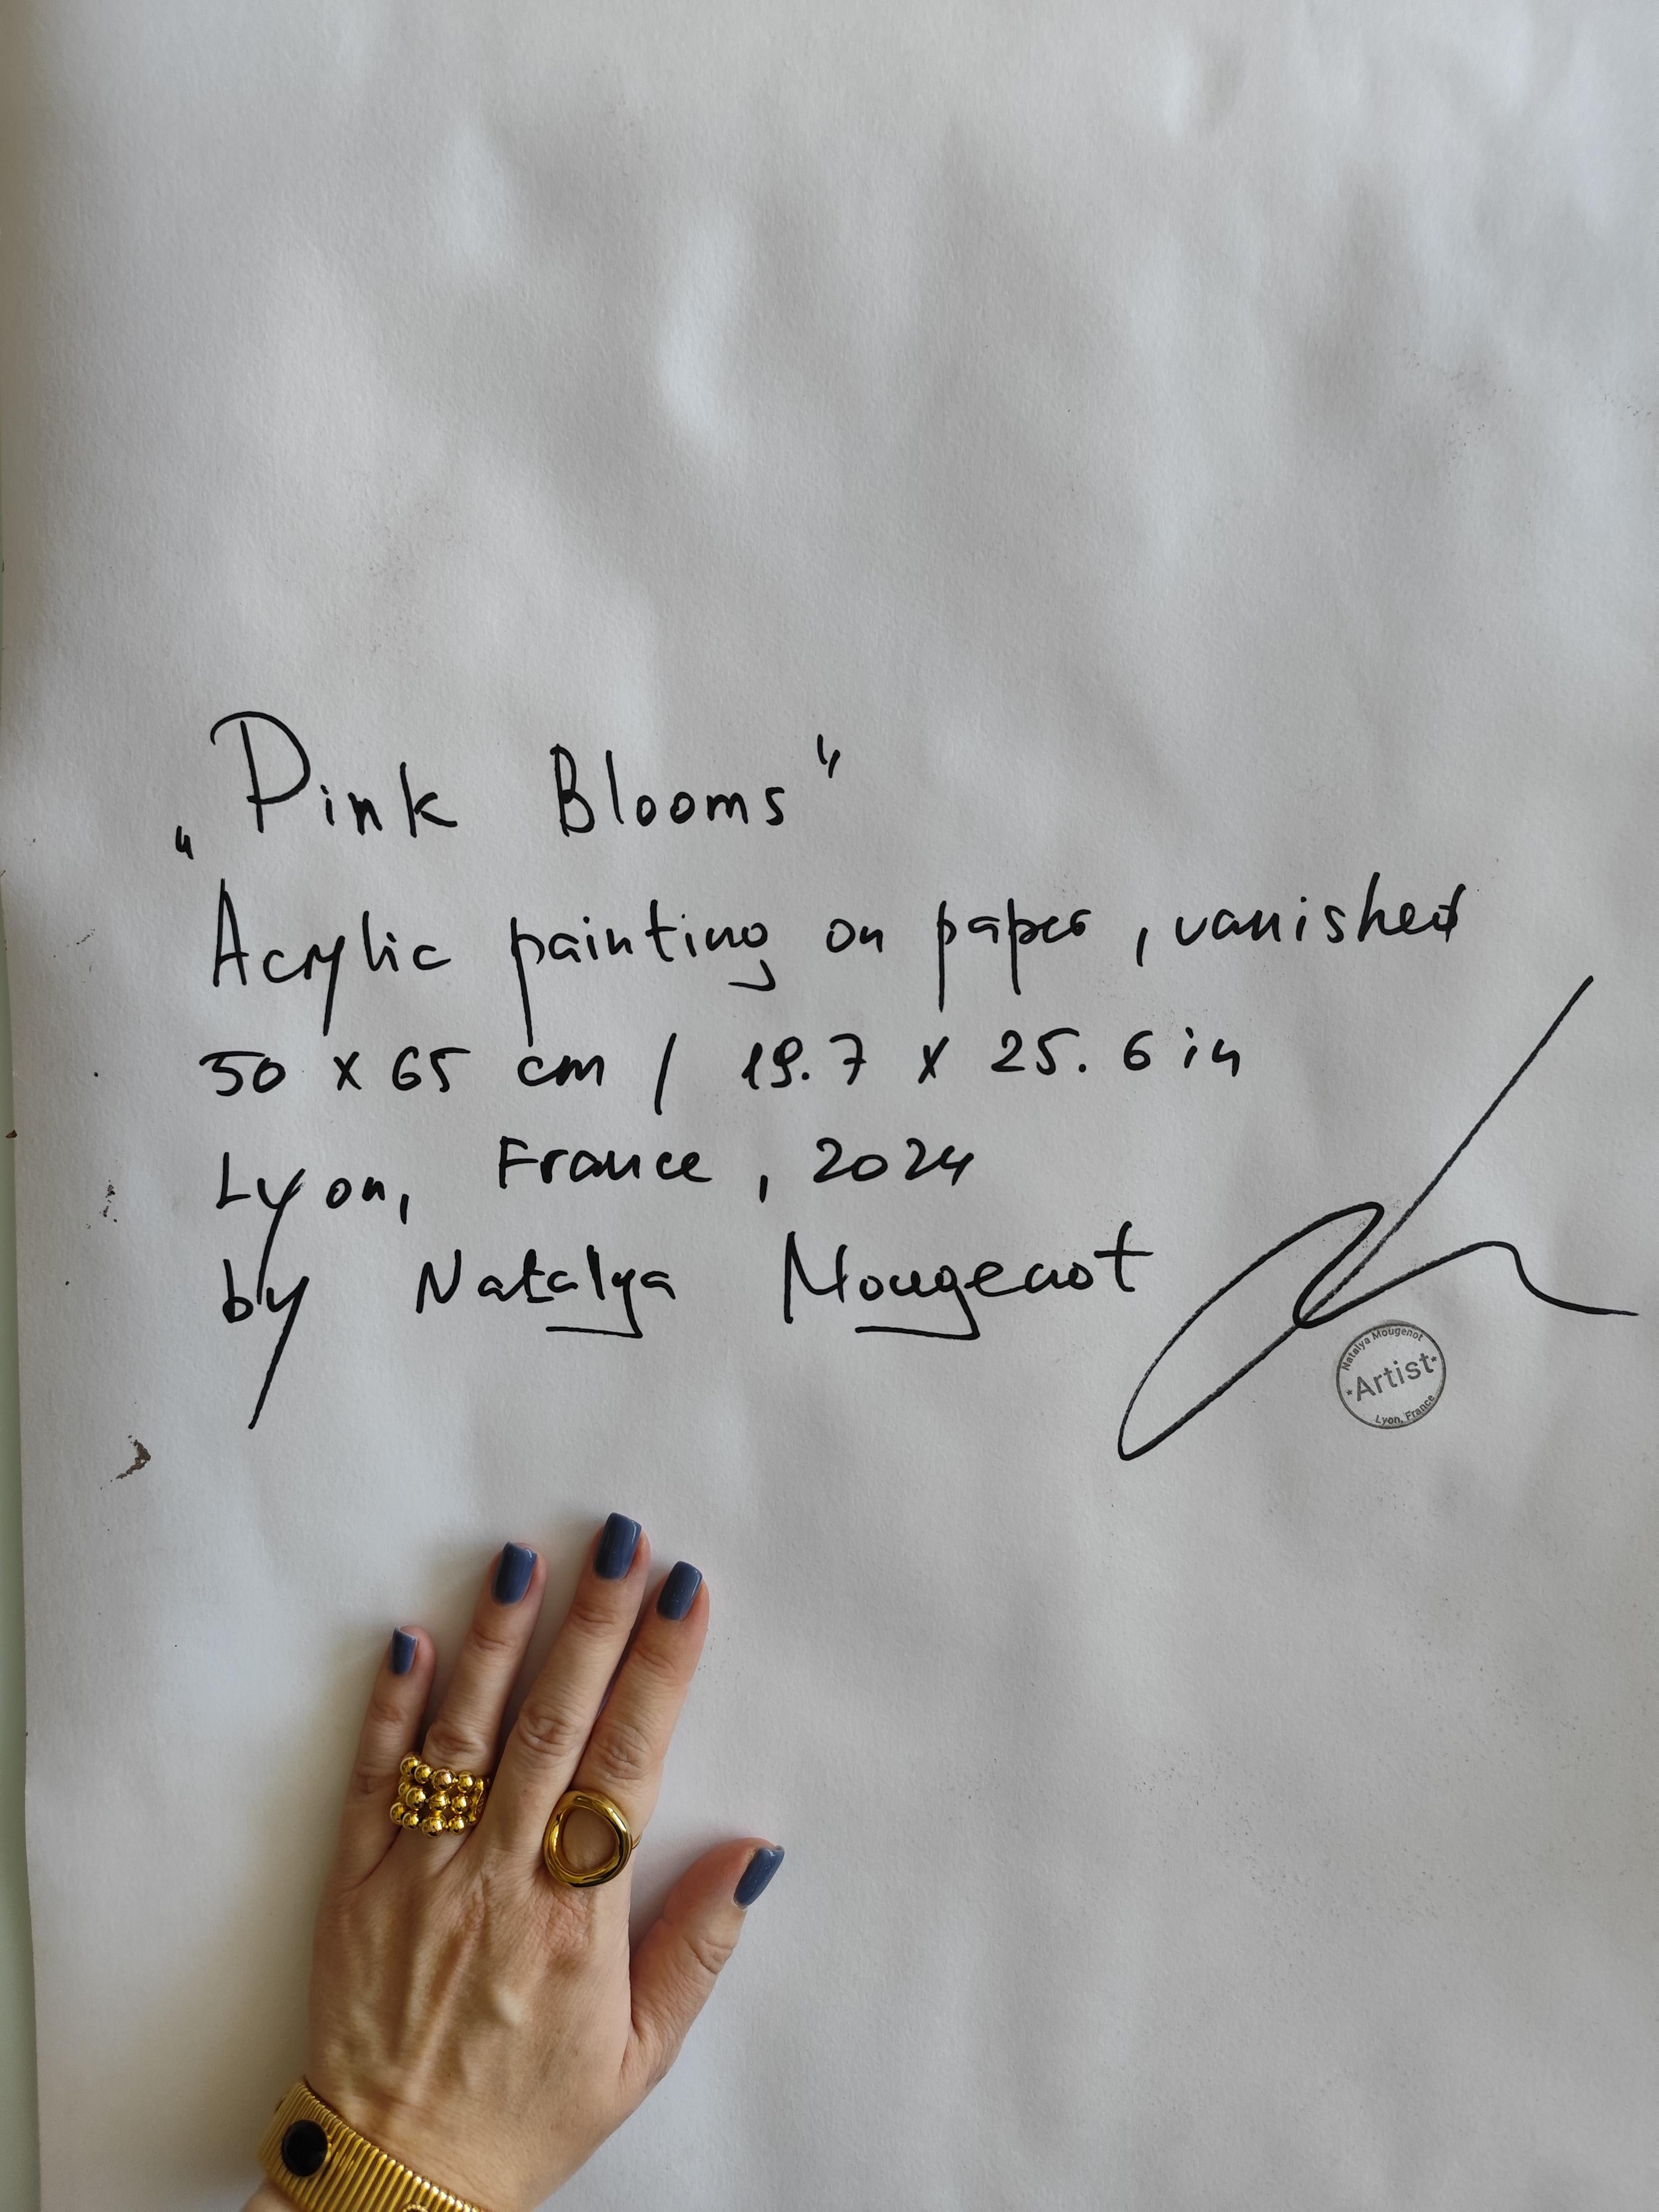 „Pink Blooms"
Acrylic painting on paper, vanished
50 x 65 cm / 19.7 x 25.6 in
Lyon, France, 2024
by Natalya Mougenot
Natalya Mougenot
Artist
Lyon, France